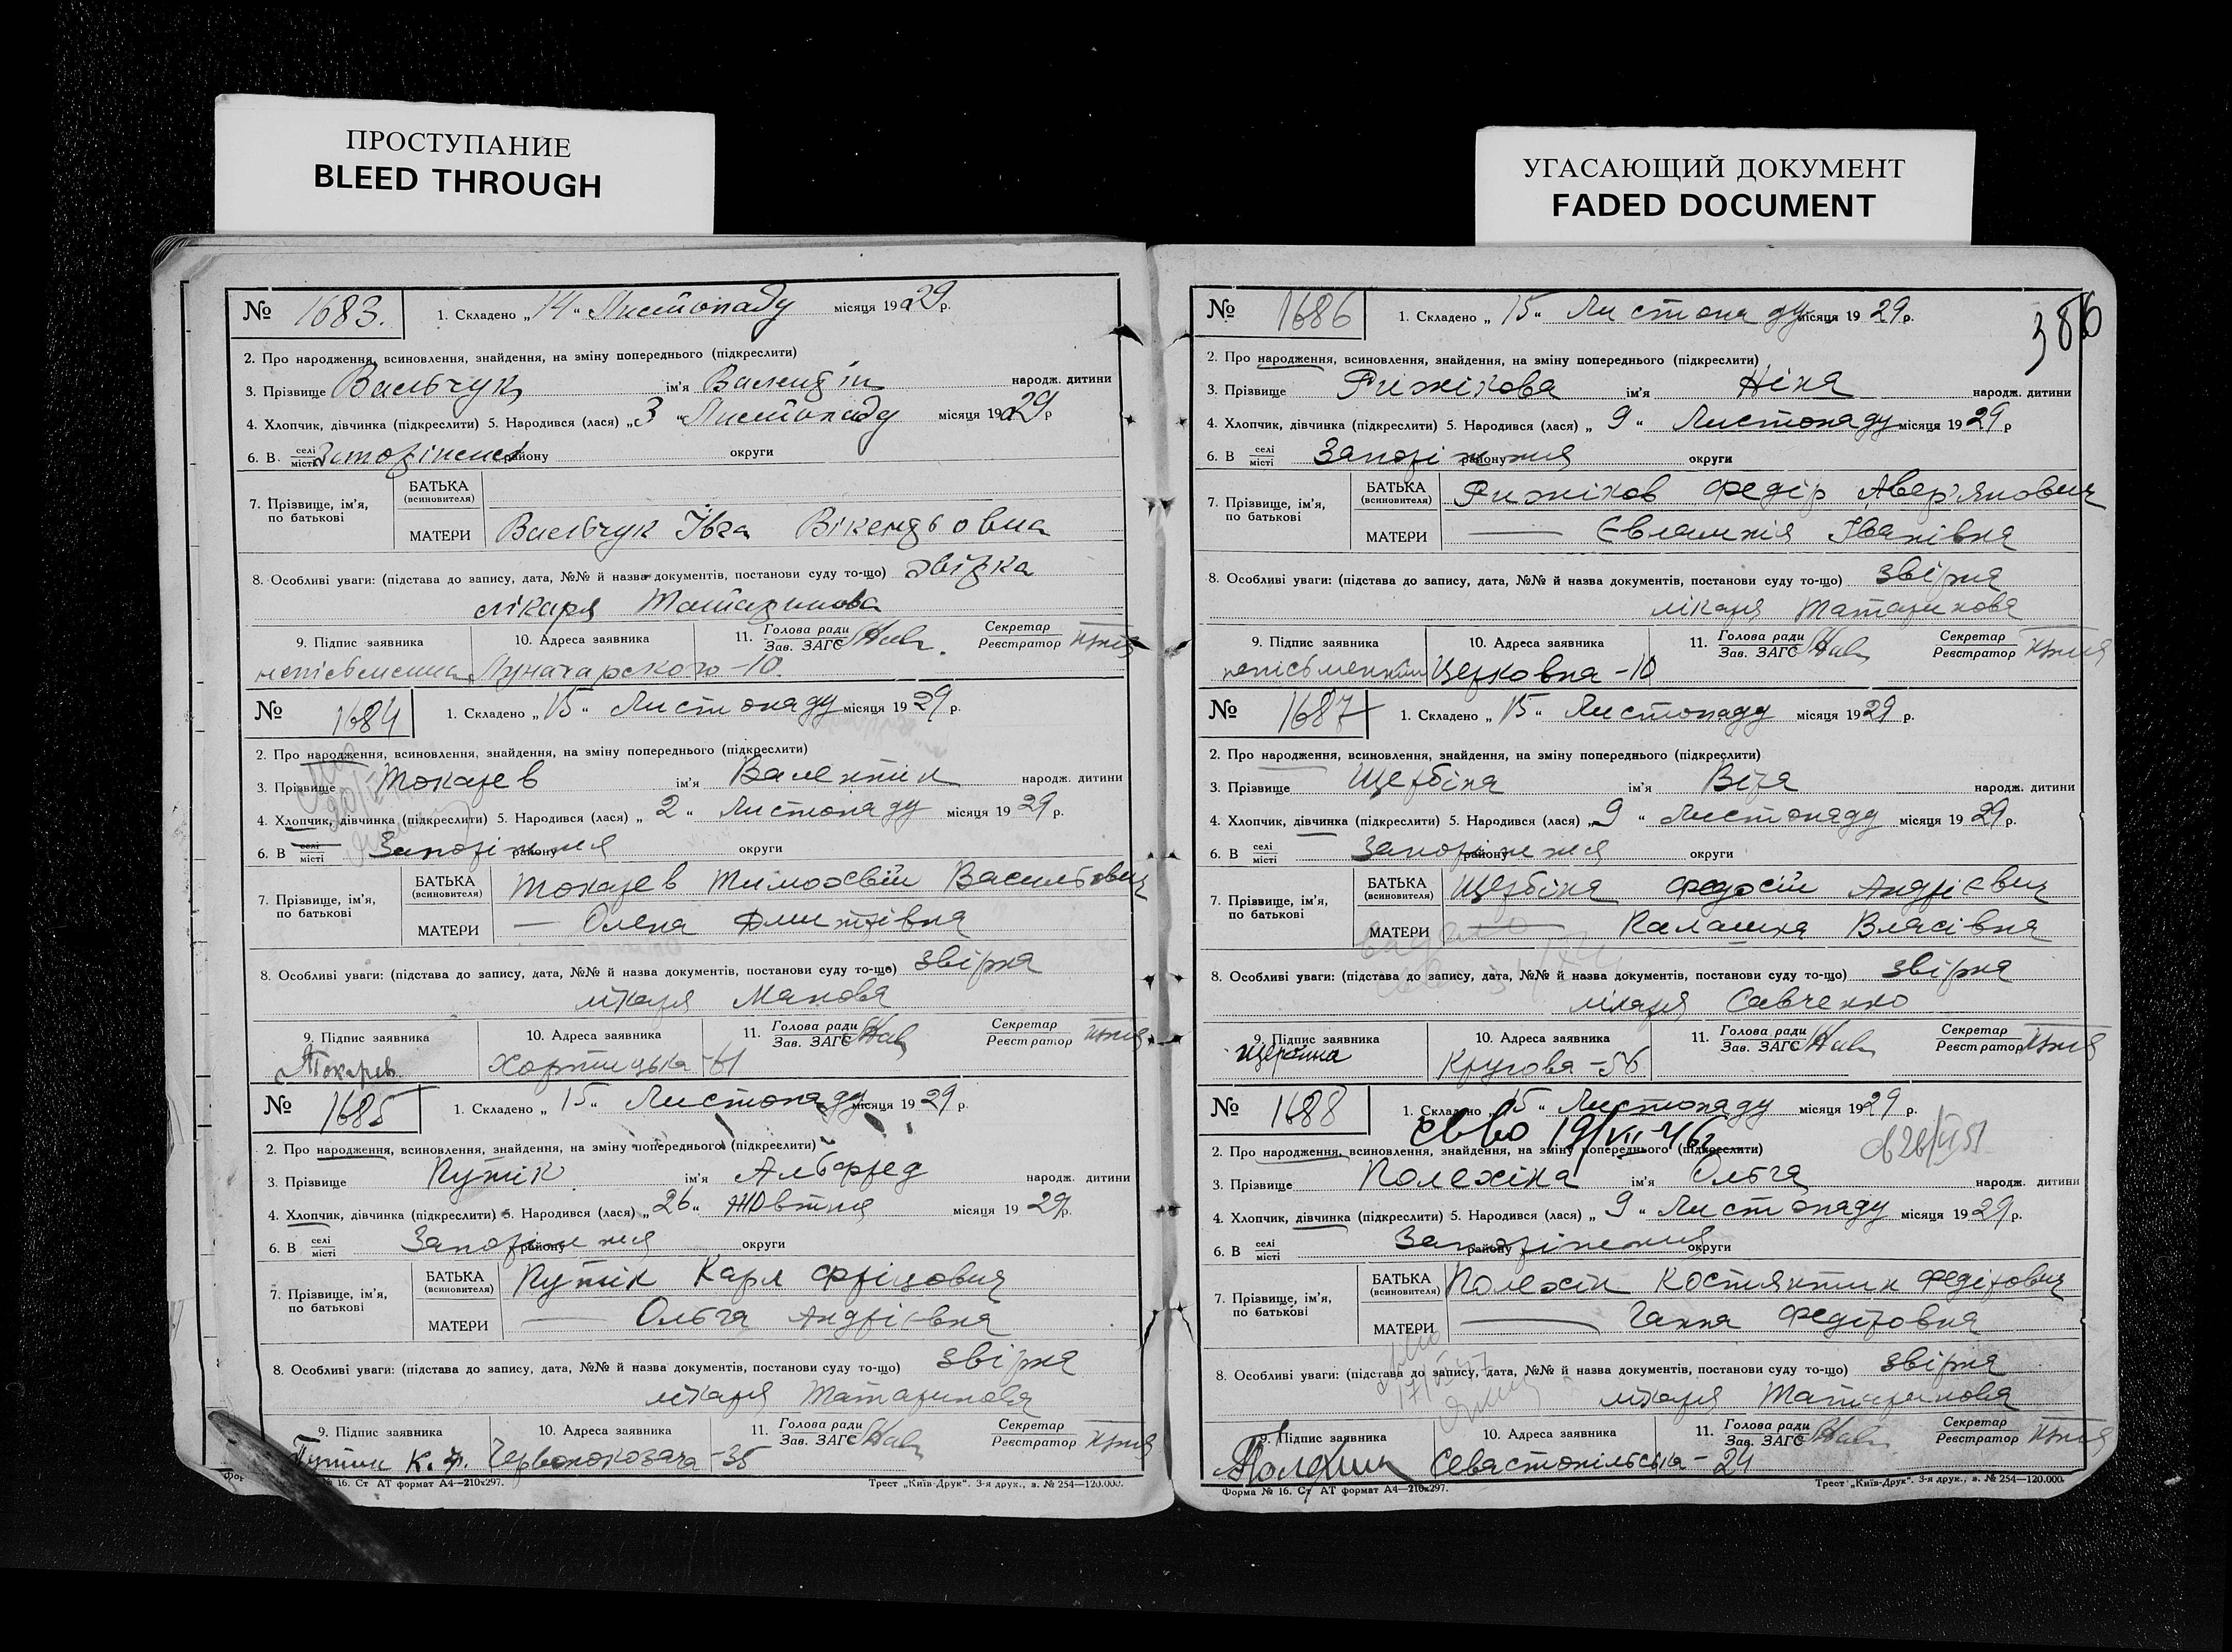 ПРОСТУПАНИЕ
BLEED THROUGH
№ 1683. 1. Складено „14“ Листопаду місяця 1929 р.
2. Про народження, всиновлення, знайдення, на зміну попереднього (підкреслити)
3. Прізвище Васьчук ім'я Валендін народж. дитини
4. Хлопчик, дівчинка (підкреслити) 5. Народився (лася) „3“ Листопаду місяця 1929 р
6. В селі місті району округи
7. Прізвище, ім'я, по батькові
БАТЬКА (всиновителя)
МАТЕРИ Васьчук Івга Вікендьовна
8. Особливі уваги: (підстава до запису, дата, №№ й назва документів, постанови суду то-що) звірка
лікаря Татаринова
9. Підпис заявника 10. Адреса заявника 11. Голова ради Зав. ЗАГС Секретар Реєстратор
неписьменна Луначарского-10.
№ 1684 1. Складено „15“ Листопаду місяця 1929 р.
2. Про народження, всиновлення, знайдення, на зміну попереднього (підкреслити)
3. Прізвище Токарев ім'я Валентін народж. дитини
4. Хлопчик, дівчинка (підкреслити) 5. Народився (лася) „2“ Листопаду місяця 1929 р.
6. В селі місті Запоріжжя району округи
7. Прізвище, ім'я, по батькові
БАТЬКА (всиновителя) Токарев Тимохвій Васильович
МАТЕРИ — Олена Дмитрівна
8. Особливі уваги: (підстава до запису, дата, №№ й назва документів, постанови суду то-що) звірка
лікаря Макова
9. Підпис заявника 10. Адреса заявника 11. Голова ради Зав. ЗАГС Секретар Реєстратор
Токарев Хортицька-41
№ 1685 1. Складено „15“ Листопаду місяця 1929 р.
2. Про народження, всиновлення, знайдення, на зміну попереднього (підкреслити)
3. Прізвище Путік ім'я Альфред народж. дитини
4. Хлопчик, дівчинка (підкреслити) 5. Народився (лася) „26“ Жовтня місяця 1929 р.
6. В селі місті Запоріжжя району округи
7. Прізвище, ім'я, по батькові
БАТЬКА (всиновителя) Путік Карл Фріцович
МАТЕРИ — Ольга Андрієвна
8. Особливі уваги: (підстава до запису, дата, №№ й назва документів, постанови суду то-що) звірка
лікаря Татаринова
9. Підпис заявника 10. Адреса заявника 11. Голова ради Зав. ЗАГС Секретар Реєстратор
К. Ф. Червонокозача-35
№ 16. Ст АТ формат А4—210х297. Трест „Київ-Друк“. 3-я друк., з. № 254—120.000.
УГАСАЮЩИЙ ДОКУМЕНТ
FADED DOCUMENT
386
№ 1686 1. Складено „15“ Листопаду місяця 1929 р.
2. Про народження, всиновлення, знайдення, на зміну попереднього (підкреслити)
3. Прізвище Рижікова ім'я Ніна народж. дитини
4. Хлопчик, дівчинка (підкреслити) 5. Народився (лася) „9“ Листопаду місяця 1929 р
6. В селі місті Запоріжжя району округи
7. Прізвище, ім'я, по батькові
БАТЬКА (всиновителя) Рижіков Федір Авер'янович
МАТЕРИ — Євлампія Іванівна
8. Особливі уваги: (підстава до запису, дата, №№ й назва документів, постанови суду то-що) звірка
лікаря Татаринова
9. Підпис заявника 10. Адреса заявника 11. Голова ради Зав. ЗАГС Секретар Реєстратор
Церковна-10
№ 1687 1. Складено „15“ Листопаду місяця 1929 р.
2. Про народження, всиновлення, знайдення, на зміну попереднього (підкреслити)
3. Прізвище Щербіна ім'я Віра народж. дитини
4. Хлопчик, дівчинка (підкреслити) 5. Народився (лася) „9“ Листопаду місяця 1929 р.
6. В селі місті Запоріжжя району округи
7. Прізвище, ім'я, по батькові
БАТЬКА (всиновителя) Щербіна Федосій Андрієвич
МАТЕРИ — Палашка Власівна
8. Особливі уваги: (підстава до запису, дата, №№ й назва документів, постанови суду то-що) звірка
лікаря Савченко
9. Підпис заявника 10. Адреса заявника 11. Голова ради Зав. ЗАГС Секретар Реєстратор
Щербина Кругова-56
№ 1688 1. Складено „15“ Листопаду місяця 1929 р.
19/VII-46
2. Про народження, всиновлення, знайдення, на зміну попереднього (підкреслити)
3. Прізвище Полехіна ім'я Ольга народж. дитини
4. Хлопчик, дівчинка (підкреслити) 5. Народився (лася) „9“ Листопаду місяця 1929 р.
6. В селі місті Запоріжжя району округи
7. Прізвище, ім'я, по батькові
БАТЬКА (всиновителя) Полехін Костянтин Федірович
МАТЕРИ — Ганна Федіровна
8. Особливі уваги: (підстава до запису, дата, №№ й назва документів, постанови суду то-що) звірка
лікаря Татаринова
9. Підпис заявника 10. Адреса заявника 11. Голова ради Зав. ЗАГС Секретар Реєстратор
Севастопільська-24
Форма № 16. Ст АТ формат А4—210х297. Трест „Київ-Друк“. 3-я друк., з. № 254—120.000.